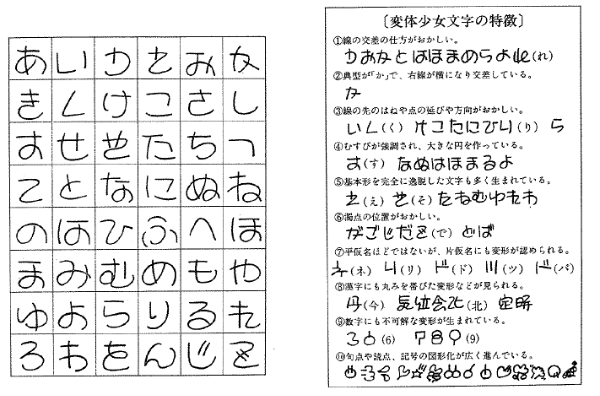 あいうえおか
きくけこさし
すせそたちつ
てとなにぬね
のはひふへほ
まみむめもや
ゆよらりるれ
ろわをんじで
〔変体少女文字の特徴〕
①線の交差の仕方がおかしい。
うおかとはほまめらよれ(れ)
②典型が「か」で、右線が横になり交差している。
か
③線の先のはねや点の延びや方向がおかしい。
いく(く) けこたにひり(り) ら
④むすびが強調され、大きな円を作っている。
す(す) なぬはほまるよ
⑤基本形を完全に逸脱した文字も多く生まれている。
え(え) そ(そ) たねむゆれわ
⑥濁点の位置がおかしい。
がごじだで(で) どば
⑦平仮名ほどではないが、片仮名にも変形が認められる。
ネ(ネ) リ(リ) ド(ド) ツ(ツ) パ(パ)
⑧漢字にも丸みを帯びた変形などが見られる。
今(今) 気位会北(北)
⑨数字にも不可解な変形が生まれている。
36(6) 789(9)
⑩句点や読点、記号の図形化が広く進んでいる。